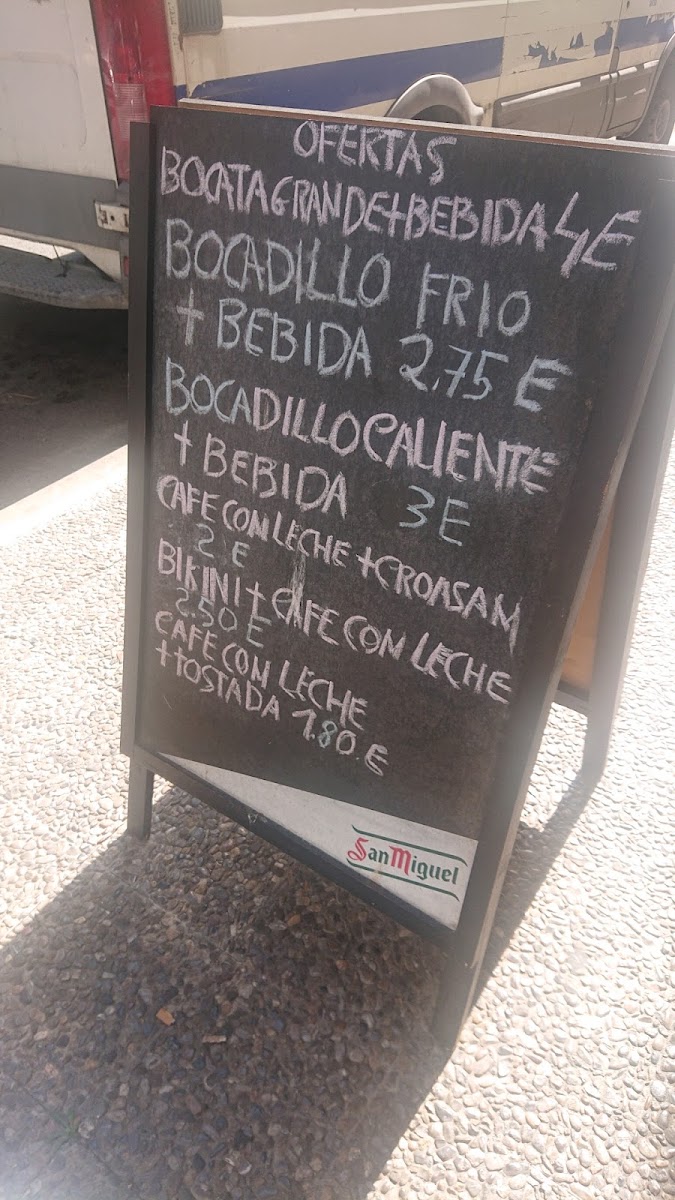 OFERTAS
BOCATA GRANDE+BEBIDA 4E
BOCADILLO FRIO
+ BEBIDA 2,75 E
BOCADILLO CALIENTE
+ BEBIDA 3E
CAFE CON LECHE + CROASAM
2 E
BIKINI + CAFE CON LECHE
2.50 E
CAFE CON LECHE
+TOSTADA 1.80 E
San Miguel